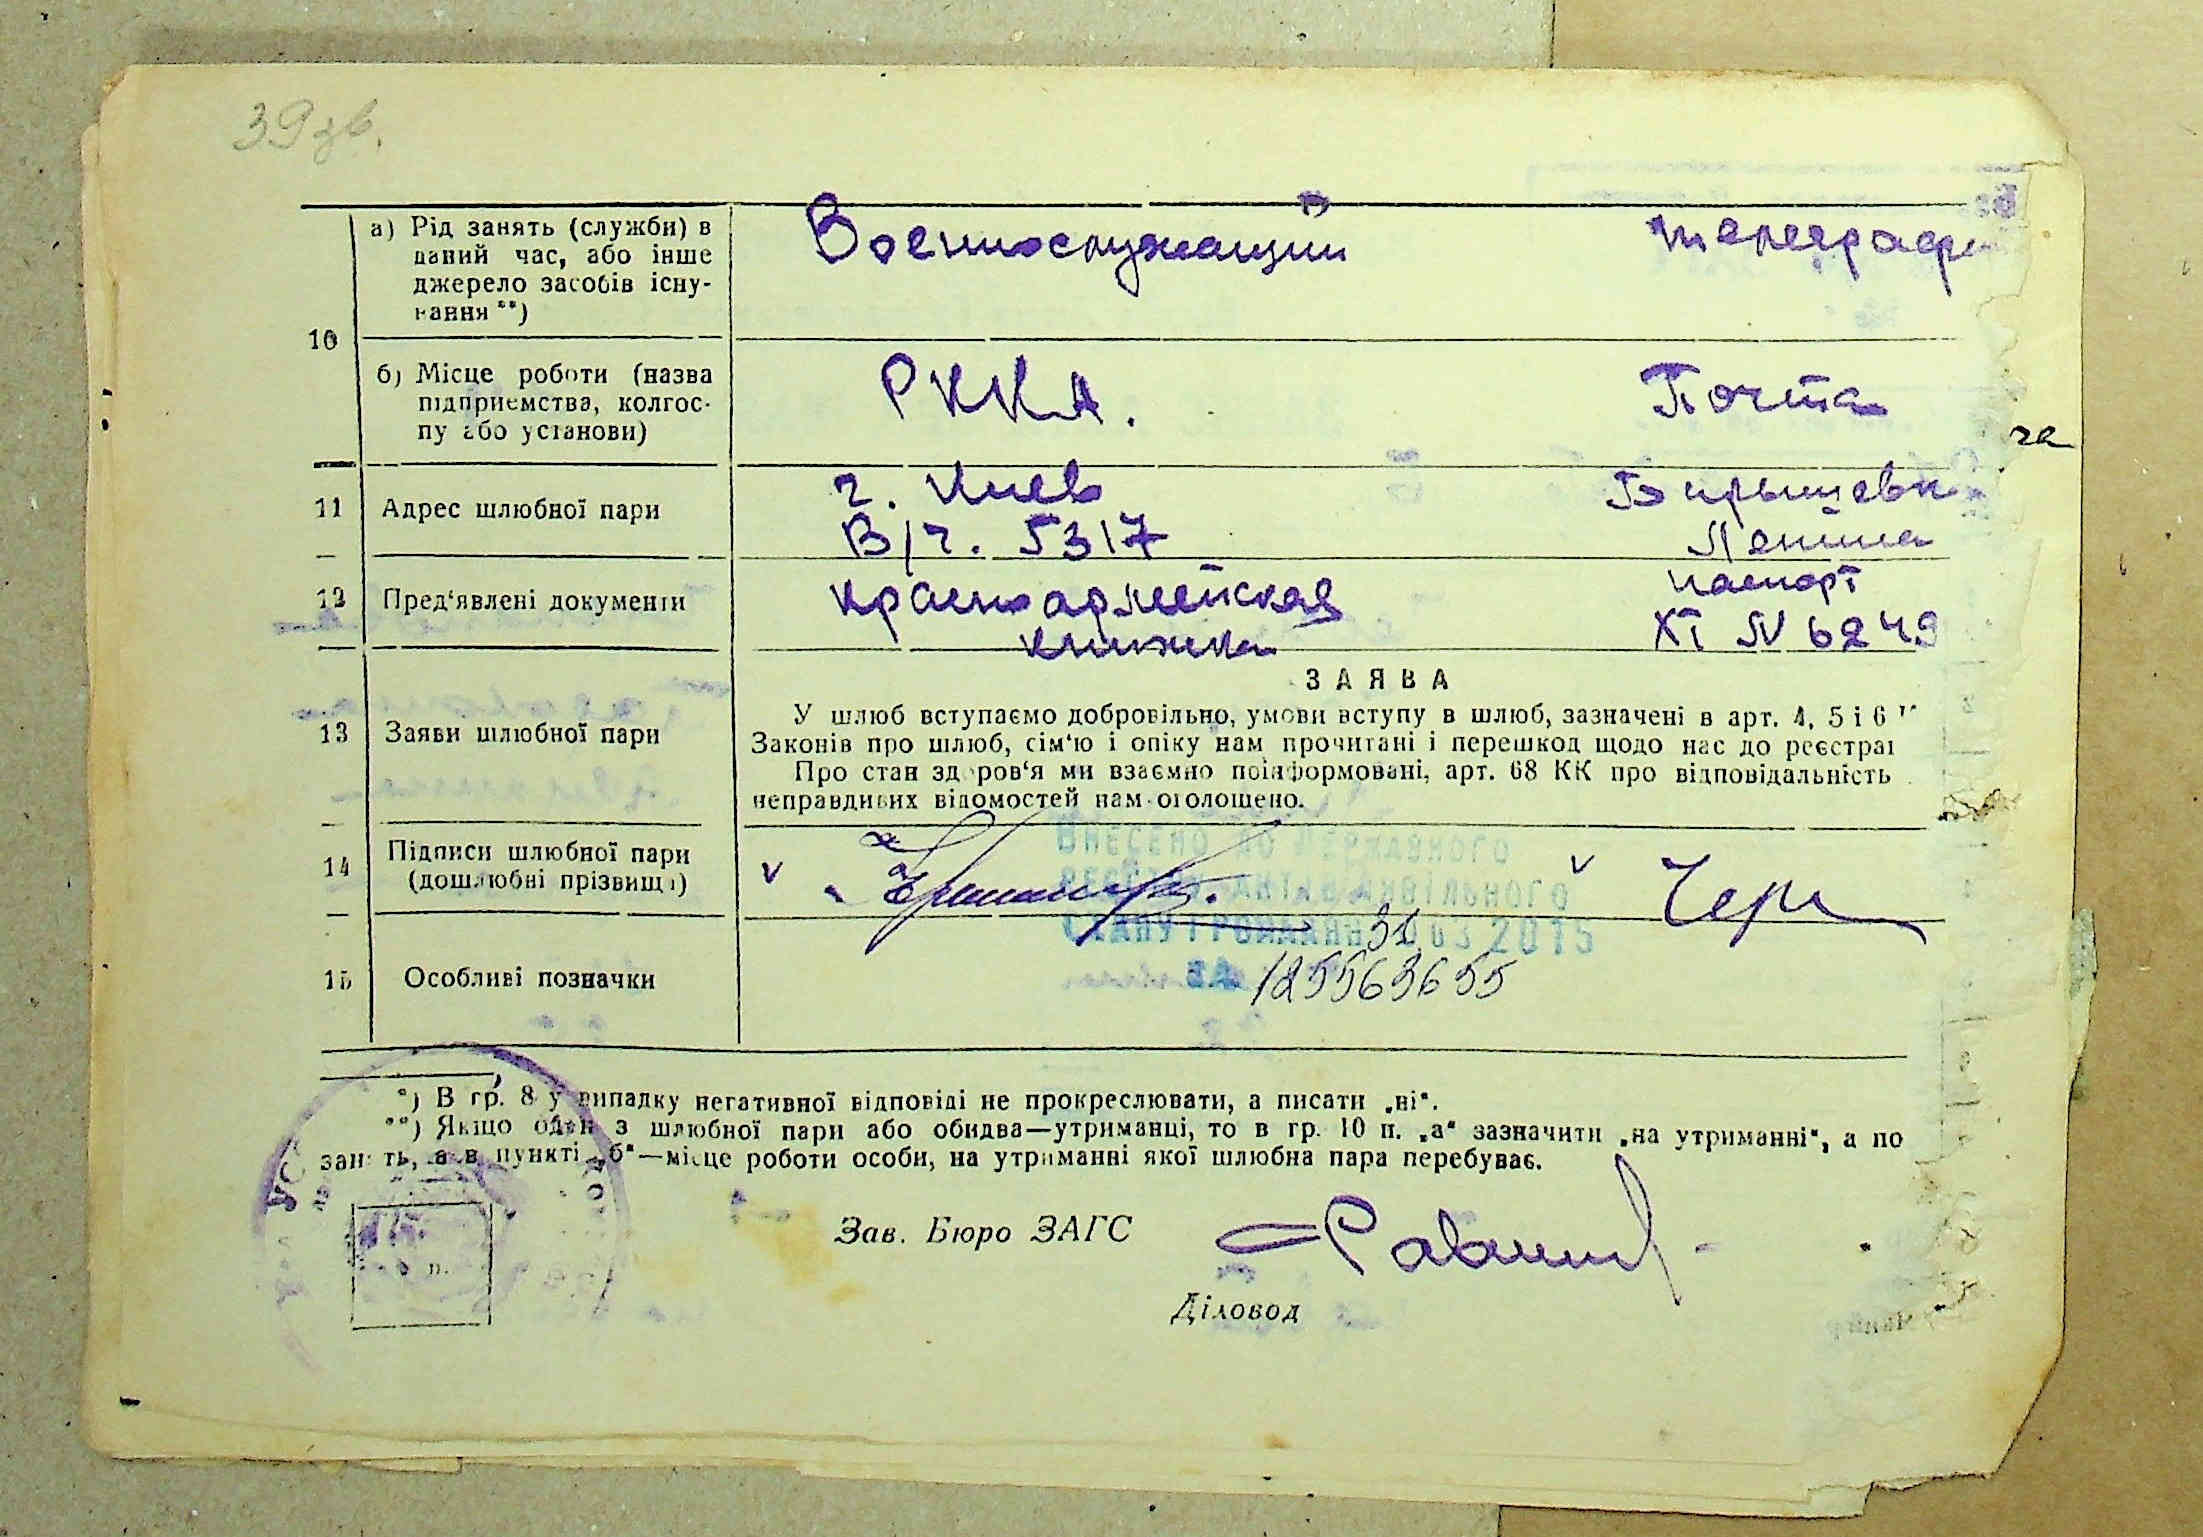 39 зв.
а) Рід занять (служби) в
даний час, або інше
джерело засобів існу-
вання **)
Военнослужащий
телеграфи
10
б) Місце роботи (назва
підприємства, колгос-
пу або установи)
РККА.
Почта
га
11 Адрес шлюбної пари
г. Киев
В/ч. 5317
Ленина
12 Пред'явлені документи
Красноармейская
книжка
паспорт
XI № 6249
ЗАЯВА
13 Заяви шлюбної пари
У шлюб вступаємо добровільно, умови вступу в шлюб, зазначені в арт. 4, 5 і 6
Законів про шлюб, сім'ю і опіку нам прочитані і перешкод щодо нас до реєстра
Про стан здоров'я ми взаємно поінформовані, арт. 68 КК про відповідальність
неправдивих відомостей нам оголошено.
14 Підписи шлюбної пари
(дошлюбні прізвища)
v
v Черн
Внесено до Державного
реєстру актів цивільного
стану громадян 31 03 2015
за 12556 3655
15 Особливі позначки
*) В гр. 8 у випадку негативної відповіді не прокреслювати, а писати „ні“.
**) Якщо один з шлюбної пари або обидва—утриманці, то в гр. 10 п. „а“ зазначити „на утриманні“, а по
занять, а в пункті „б“—місце роботи особи, на утриманні якої шлюбна пара перебуває.
п.
Зав. Бюро ЗАГС
Діловод